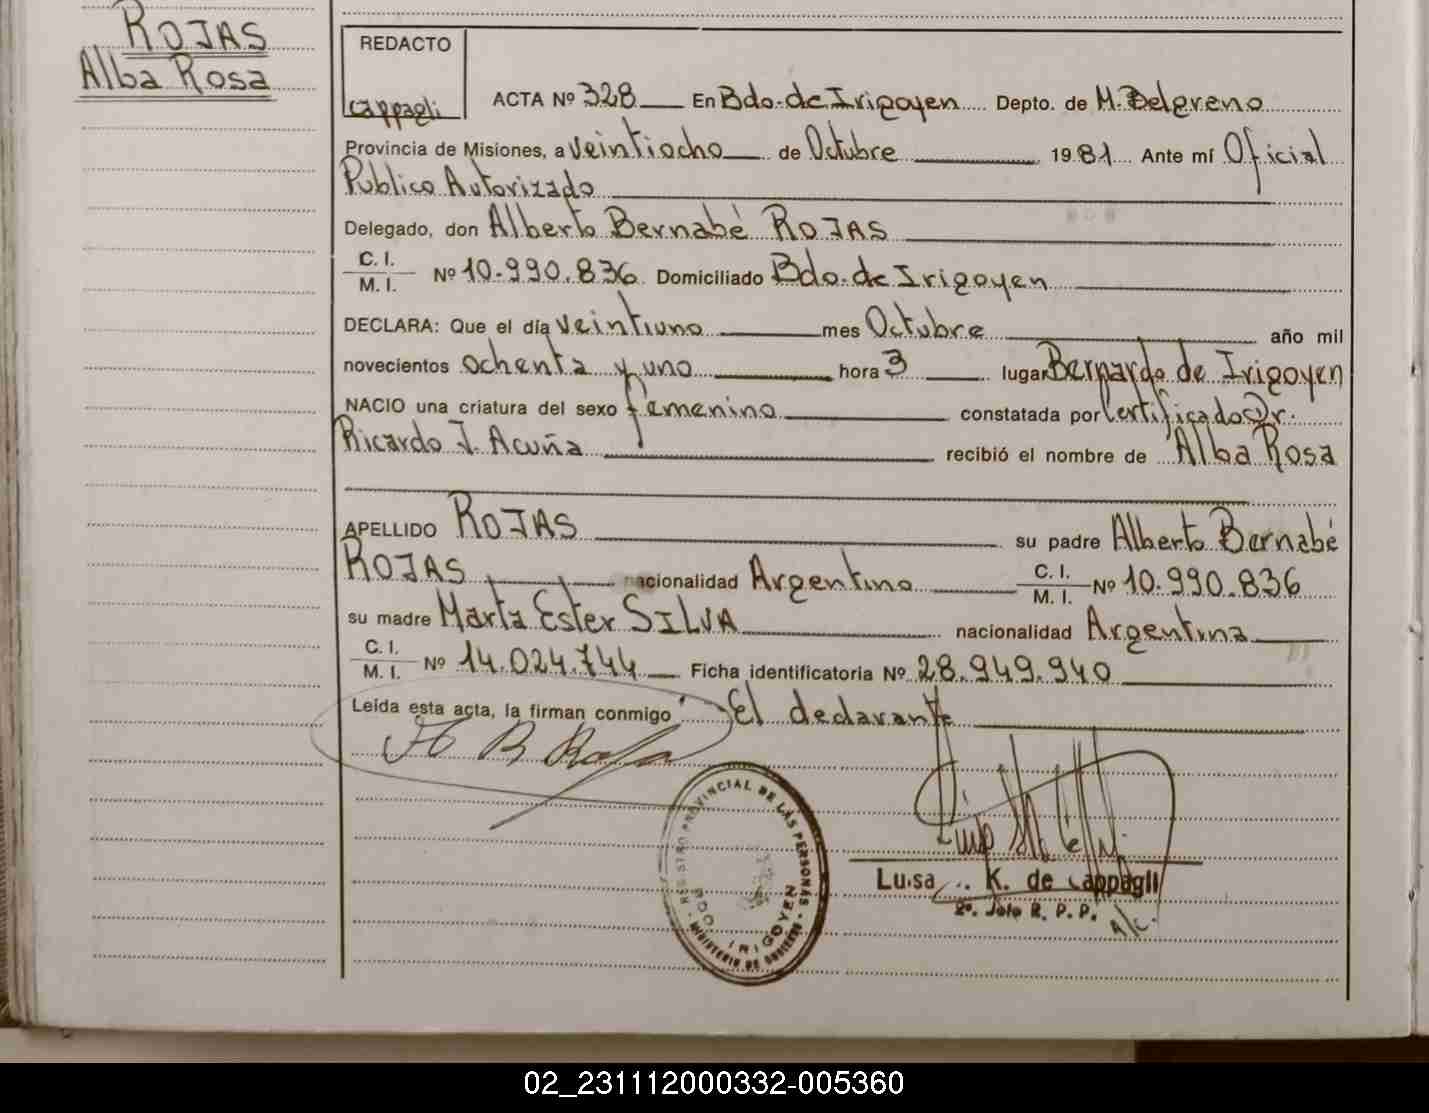 ROJAS
Alba Rosa
REDACTO
Cappagli
ACTA Nº 328 En Bdo. de Irigoyen Depto. de M. Belgreno
Provincia de Misiones, a veintiocho de Octubre 1981 Ante mí Oficial
Publico Autorizado
Delegado, don Alberto Bernabé ROJAS
C. I.
M. I. Nº 10.990.836 Domiciliado Bdo. de Irigoyen
DECLARA: Que el día veintiuno mes Octubre año mil
novecientos ochenta y uno hora 3 lugar Bernardo de Irigoyen
NACIO una criatura del sexo femenino constatada por Certificado Dr.
Ricardo J. Acuña recibió el nombre de Alba Rosa
APELLIDO ROJAS su padre Alberto Bernabé
ROJAS nacionalidad Argentino C. I. M. I. Nº 10.990.836
su madre Marta Ester SILVA nacionalidad Argentina
C. I.
M. I. Nº 14.024.744 Ficha identificatoria Nº 28.949.940
Leída esta acta, la firman conmigo El declarante
A B Rojas
REGISTRO PROVINCIAL DE LAS PERSONAS
BDO. IRIGOYEN
MINISTERIO DE GOBIERNO
Luisa K. de Cappagli
2º. Jefe R. P. P. A/c.
02_231112000332-005360